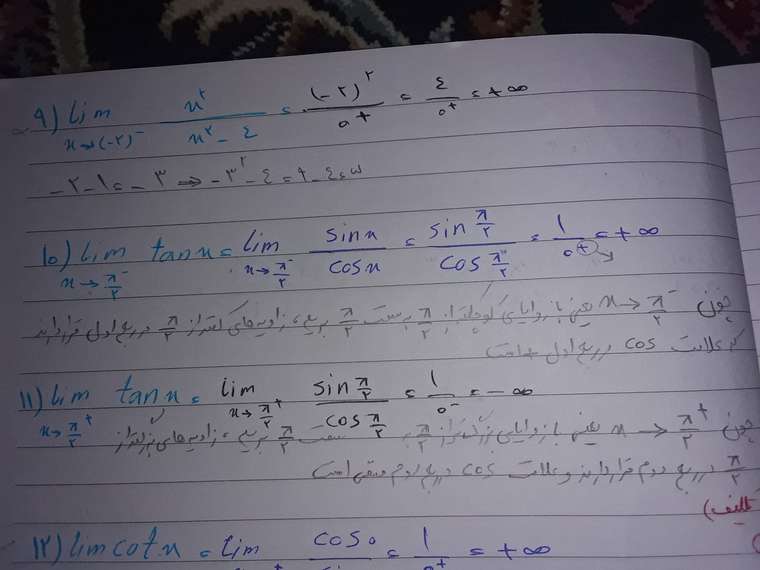 ۹) lim x→(-۲)⁻ x²/(x²-۴) = (-۲)²/۰⁺ = ۴/۰⁺ = +∞
-۲-۱ = -۳ ⇒ -۳² - ۴ = ۹-۴ = ۵
۱۰) lim x→π/۲⁻ tan x = lim x→π/۲⁻ sin x / cos x = sin π/۲ / cos π/۲⁻ = ۱/۰⁺ = +∞
چون x → π/۲⁻ یعنی با زوایایی کوچکتر از π/۲ به سمت π/۲ بریم، زاویه‌های کمتر از π/۲ در ربع اول قرار دارند
که علامت cos در ربع اول + است
۱۱) lim x→π/۲⁺ tan x = lim x→π/۲⁺ sin π/۲ / cos π/۲ = ۱/۰⁻ = -∞
چون x → π/۲⁺ یعنی با زوایایی بزرگتر از π/۲ سمت π/۲ بریم، زاویه‌های بزرگتر از
π/۲ در ربع دوم قرار دارند و علامت cos در ربع دوم منفی است
تکلیف)
۱۲) lim cot x = lim cos ۰ = ۱/۰⁺ = +∞